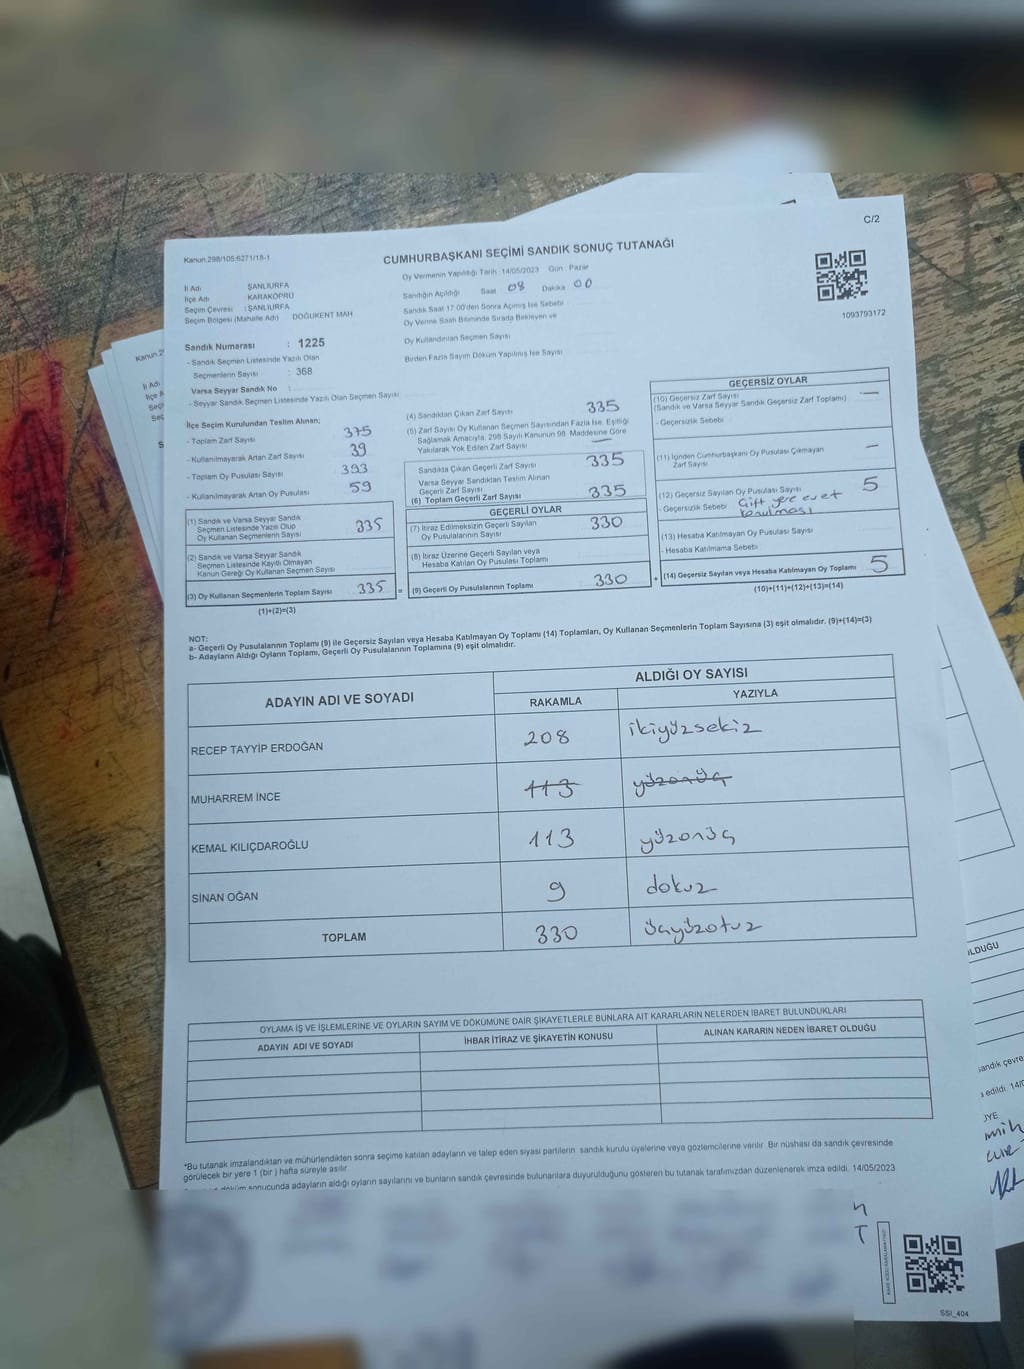 C/2
Kanun.298/105,6271/18-1
CUMHURBAŞKANI SEÇİMİ SANDIK SONUÇ TUTANAĞI
Oy Vermenin Yapıldığı Tarih :14/05/2023 Gün Pazar
İl Adı : ŞANLIURFA
İlçe Adı : KARAKÖPRÜ
Seçim Çevresi : ŞANLIURFA
Seçim Bölgesi (Mahalle Adı) DOĞUKENT MAH
Sandığın Açıldığı Saat 08 Dakika 00
Sandık Saat 17:00'den Sonra Açılmış İse Sebebi
Oy Verme Saati Bitiminde Sırada Bekleyen ve
Oy Kullandırılan Seçmen Sayısı
Birden Fazla Sayım Döküm Yapılmış İse Sayısı
1093793172
Sandık Numarası : 1225
- Sandık Seçmen Listesinde Yazılı Olan
Seçmenlerin Sayısı : 368
Varsa Seyyar Sandık No :
- Seyyar Sandık Seçmen Listesinde Yazılı Olan Seçmen Sayısı
İlçe Seçim Kurulundan Teslim Alınan;
- Toplam Zarf Sayısı 375
- Kullanılmayarak Artan Zarf Sayısı 39
- Toplam Oy Pusulası Sayısı 393
- Kullanılmayarak Artan Oy Pusulası 59
(1) Sandık ve Varsa Seyyar Sandık
Seçmen Listesinde Yazılı Olup
Oy Kullanan Seçmenlerin Sayısı 335
(2) Sandık ve Varsa Seyyar Sandık
Seçmen Listesinde Kayıtlı Olmayan
Kanun Gereği Oy Kullanan Seçmen Sayısı
(3) Oy Kullanan Seçmenlerin Toplam Sayısı 335 =
(1)+(2)=(3)
(4) Sandıktan Çıkan Zarf Sayısı 335
(5) Zarf Sayısı Oy Kullanan Seçmen Sayısından Fazla İse, Eşitliği
Sağlamak Amacıyla, 298 Sayılı Kanunun 98. Maddesine Göre
Yakılarak Yok Edilen Zarf Sayısı —
Sandıkta Çıkan Geçerli Zarf Sayısı 335
Varsa Seyyar Sandıktan Teslim Alınan
Geçerli Zarf Sayısı
(6) Toplam Geçerli Zarf Sayısı 335
GEÇERLİ OYLAR
(7) İtiraz Edilmeksizin Geçerli Sayılan
Oy Pusulalarının Sayısı 330
(8) İtiraz Üzerine Geçerli Sayılan veya
Hesaba Katılan Oy Pusulası Toplamı
(9) Geçerli Oy Pusulalarının Toplamı 330 +
GEÇERSİZ OYLAR
(10) Geçersiz Zarf Sayısı —
(Sandık ve Varsa Seyyar Sandık Geçersiz Zarf Toplamı)
- Geçersizlik Sebebi
(11) İçinden Cumhurbaşkanı Oy Pusulası Çıkmayan
Zarf Sayısı —
(12) Geçersiz Sayılan Oy Pusulası Sayısı 5
- Geçersizlik Sebebi Çift yere evet
konulması
(13) Hesaba Katılmayan Oy Pusulası Sayısı
- Hesaba Katılmama Sebebi
(14) Geçersiz Sayılan veya Hesaba Katılmayan Oy Toplamı 5
(10)+(11)+(12)+(13)=(14)
NOT:
a- Geçerli Oy Pusulalarının Toplamı (9) ile Geçersiz Sayılan veya Hesaba Katılmayan Oy Toplamı (14) Toplamları, Oy Kullanan Seçmenlerin Toplam Sayısına (3) eşit olmalıdır. (9)+(14)=(3)
b- Adayların Aldığı Oyların Toplamı, Geçerli Oy Pusulalarının Toplamına (9) eşit olmalıdır.
ADAYIN ADI VE SOYADI
ALDIĞI OY SAYISI
RAKAMLA YAZIYLA
RECEP TAYYİP ERDOĞAN 208 ikiyüzsekiz
MUHARREM İNCE 113 yüzonüç
KEMAL KILIÇDAROĞLU 113 yüzonüç
SİNAN OĞAN 9 dokuz
TOPLAM 330 üçyüzotuz
OYLAMA İŞ VE İŞLEMLERİNE VE OYLARIN SAYIM VE DÖKÜMÜNE DAİR ŞİKAYETLERLE BUNLARA AİT KARARLARIN NELERDEN İBARET BULUNDUKLARI
ADAYIN ADI VE SOYADI İHBAR İTİRAZ VE ŞİKAYETİN KONUSU ALINAN KARARIN NEDEN İBARET OLDUĞU
*Bu tutanak imzalandıktan ve mühürlendikten sonra seçime katılan adayların ve talep eden siyasi partilerin sandık kurulu üyelerine veya gözlemcilerine verilir. Bir nüshası da sandık çevresinde
görülecek bir yere 1 (bir) hafta süreyle asılır.
döküm sonucunda adayların aldığı oyların sayılarını ve bunların sandık çevresinde bulunanlara duyurulduğunu gösteren bu tutanak tarafımızdan düzenlenerek imza edildi. 14/05/2023
SSI_404
Kanun.2
İl Adı
İlçe A
Seçi
Seç
S
LDUĞU
sandık çevre
edildi. 14/0
ÜYE